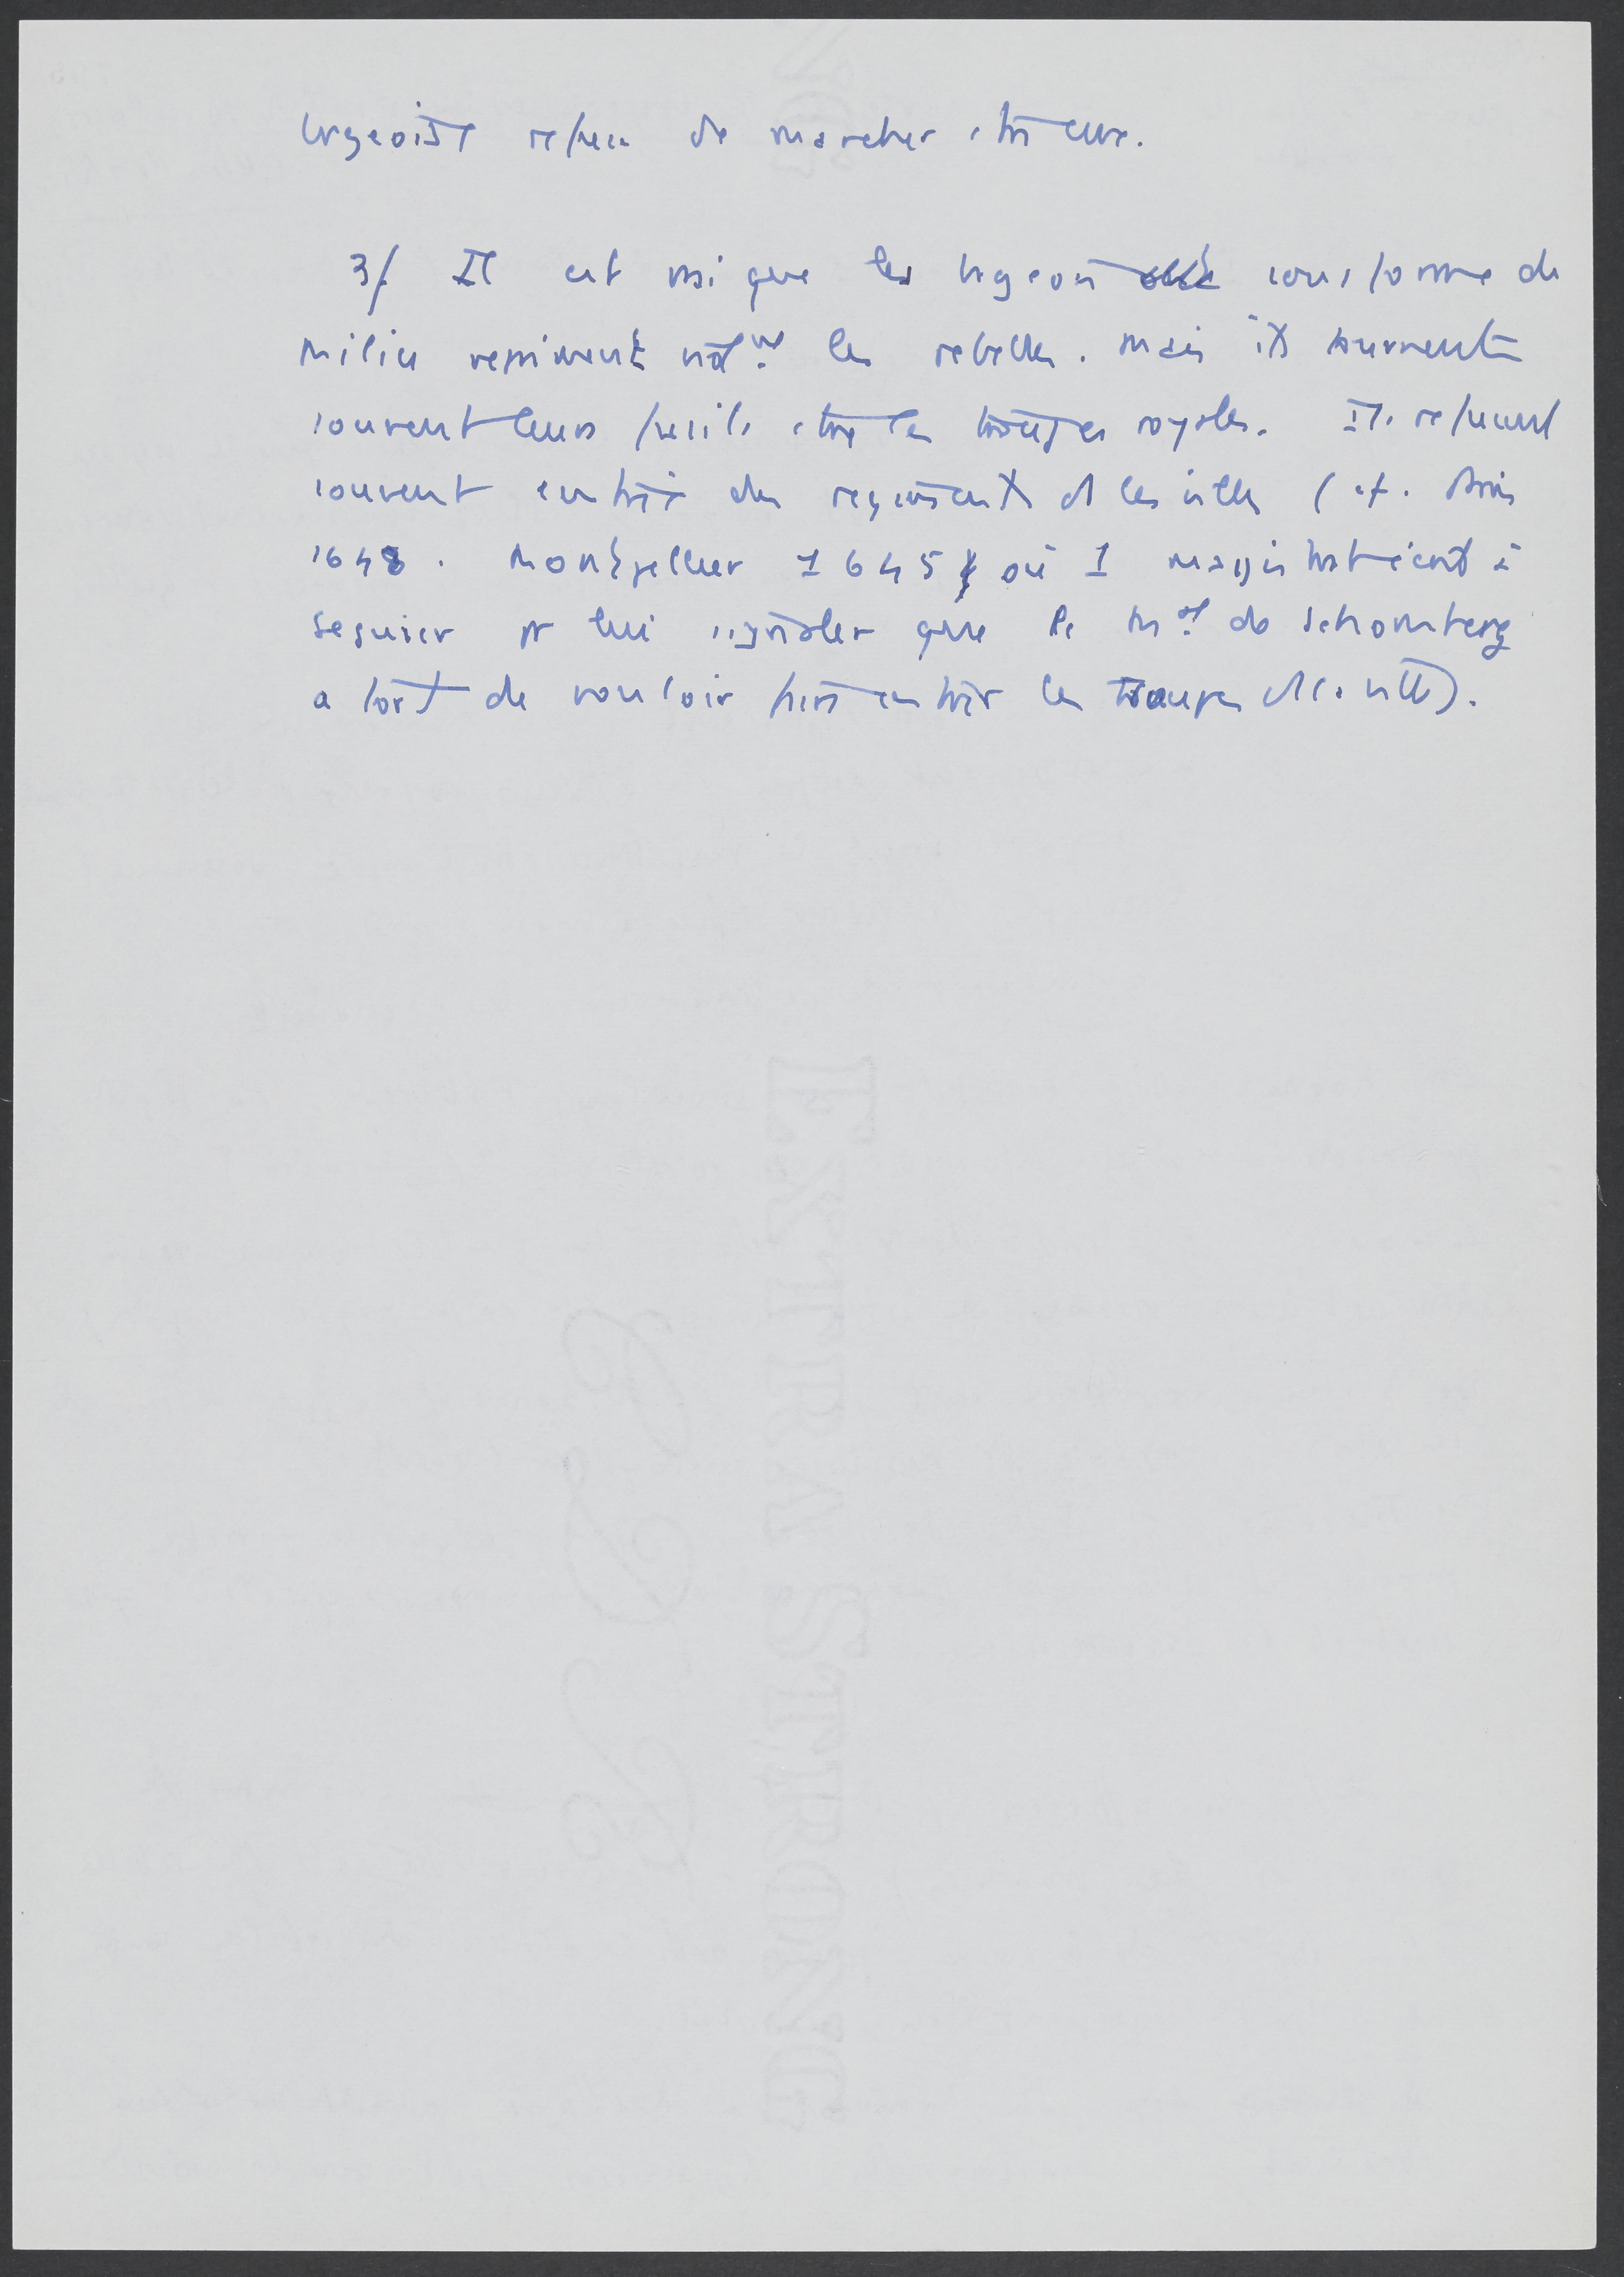 bourgeoisie refusa de marcher contre eux.
3/ Il est vrai que les bourgeois sous forme de
milice répriment not.mt les rebelles. Mais ils tournent
souvent leurs fusils contre les troupes royales. Ils refusent
souvent entrée des régiments ds les villes (cf.
1648. Montpellier 1645 où 1 magistrat écrit à
Seguier pr lui signaler que le Mal de Schomberg
a tort de vouloir faire entrer les troupes ds la ville).
EXTRA STRONG